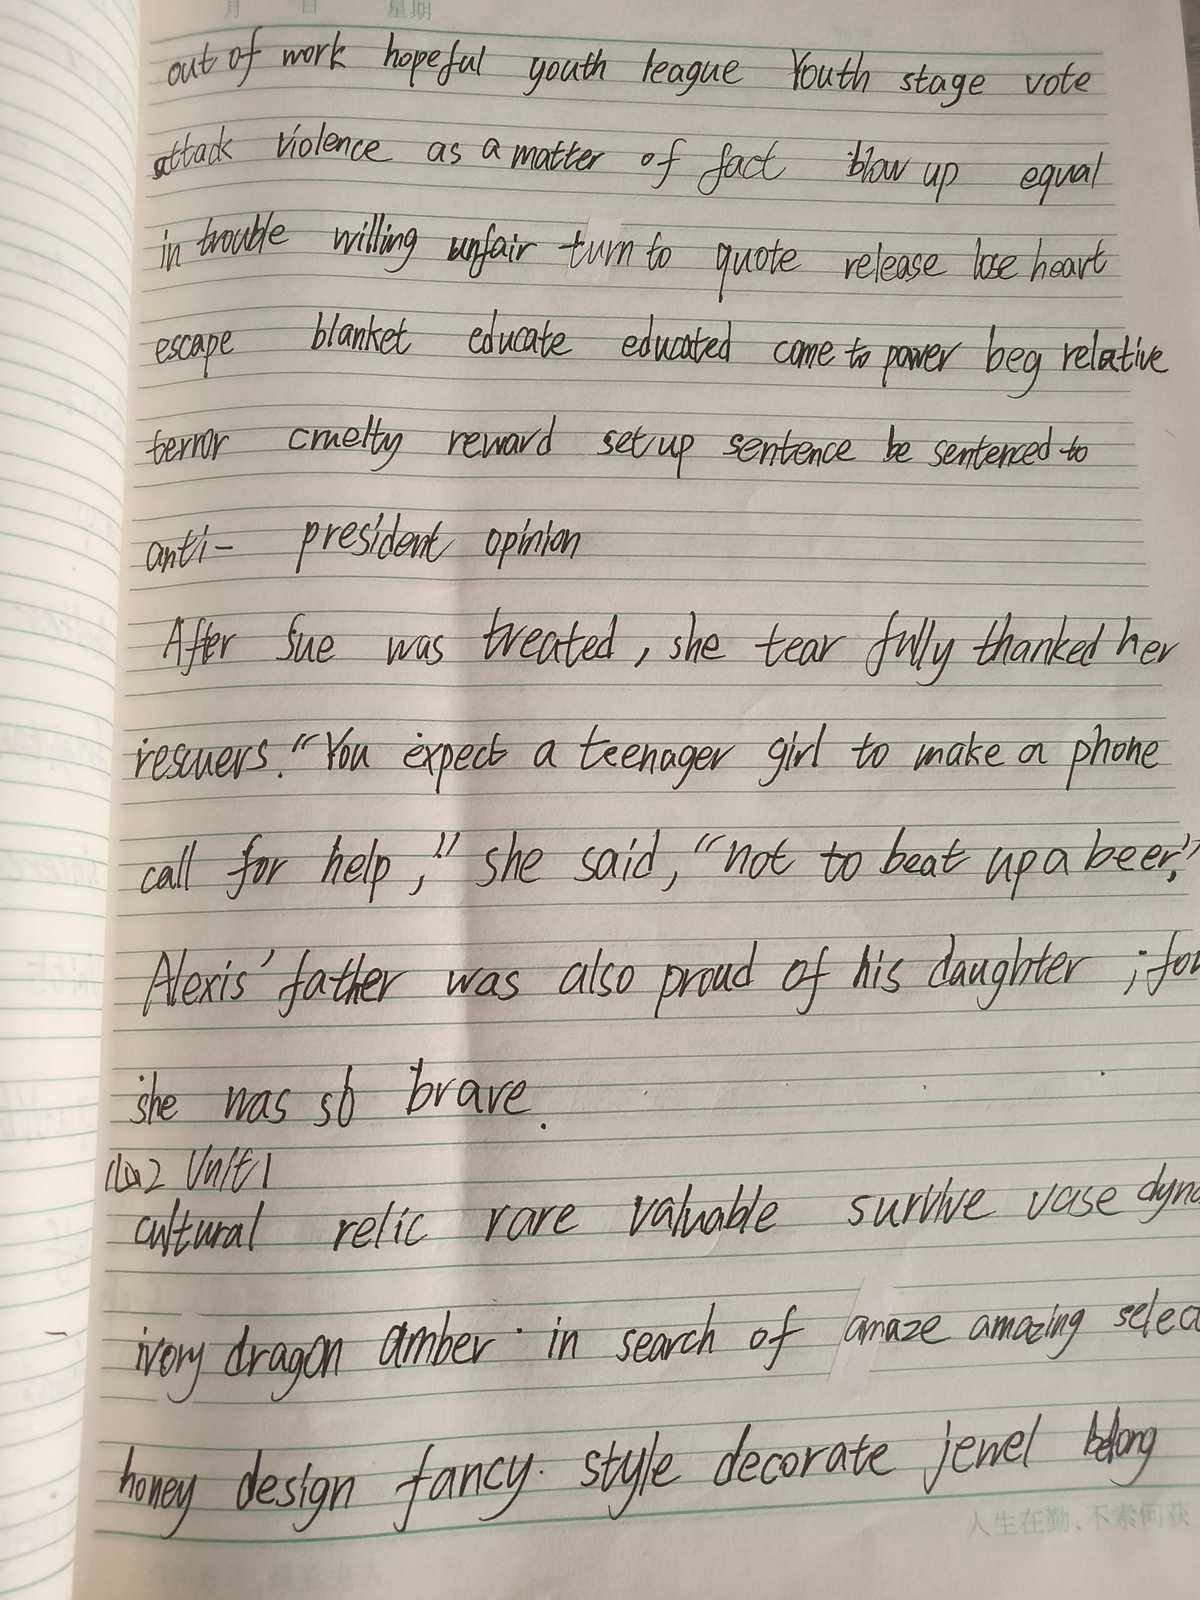 月 日 星期
out of work hopeful youth league Youth stage vote
attack violence as a matter of fact blow up equal
in trouble willing unfair turn to quote release lose heart
escape blanket educate educated come to power beg relative
terror cruelty reward set up sentence be sentenced to
anti- president opinion
After Sue was treated, she tear fully thanked her
rescuers. "You expect a teenager girl to make a phone
call for help," she said, "not to beat up a beer,"
Alexis' father was also proud of his daughter ; for
she was so brave.
Unit 1
cultural relic rare valuable survive vase
ivory dragon amber in search of amaze amazing
honey design fancy style decorate jewel belong
人生在勤,不索何获